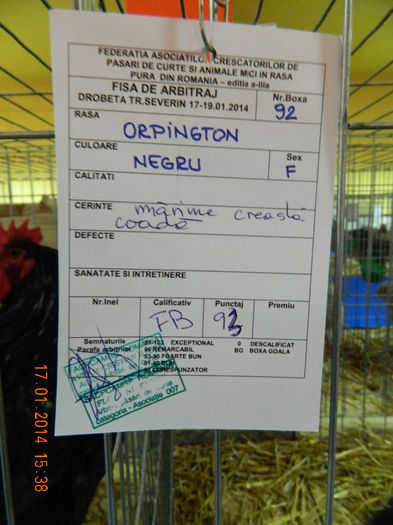 FEDERATIA ASOCIATIILOR CRESCATORILOR DE
PASARI DE CURTE SI ANIMALE MICI IN RASA
PURA DIN ROMANIA – editia a-IIIa
FISA DE ARBITRAJ
DROBETA TR.SEVERIN 17-19.01.2014
Nr.Boxa
92
RASA
ORPINGTON
CULOARE
NEGRU
Sex
F
CALITATI
CERINTE mărime creastă
coadă
DEFECTE
SANATATE SI INTRETINERE
Nr.Inel
Calificativ
FB
Punctaj
93
Premiu
Semnaturile
Parafa arbitrilor
97-100 EXCEPTIONAL 0 DESCALIFICAT
96 REMARCABIL BG BOXA GOALA
93-95 FOARTE BUN
BUN
CORESPUNZATOR
Categoria - Asociatie 007
17.01.2014 15:38